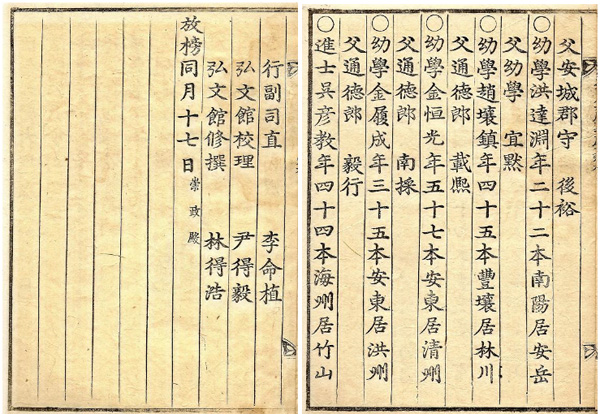 父安城郡守 後裕
○幼學洪達淵年二十二本南陽居安岳
父幼學 宜默
○幼學趙壤鎮年四十五本豐壤居林川
父通德郎 載熙
○幼學金恒光年五十七本安東居清州
父通德郎 南採
○幼學金履成年三十五本安東居洪州
父通德郎 毅行
○進士吳彦教年四十四本海州居竹山
行副司直 李命植
弘文館校理 尹得毅
弘文館修撰 林得浩
放榜同月十七日崇政殿